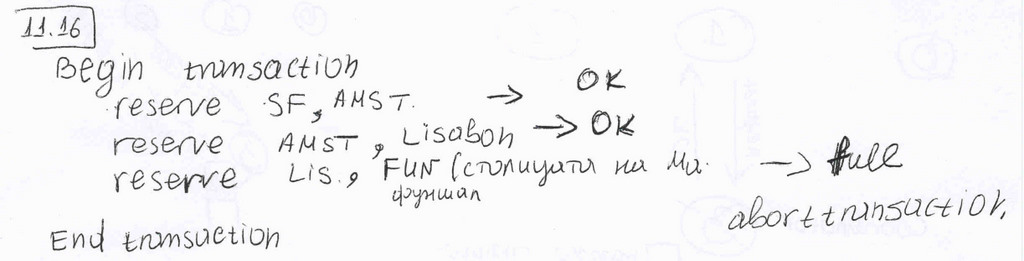 11.16
Begin transaction
reserve SF, AMST. → OK
reserve AMST, Lisabon → OK
reserve Lis., FUN (столицата на Ма. → full
фуншал
abort transaction,
End transaction